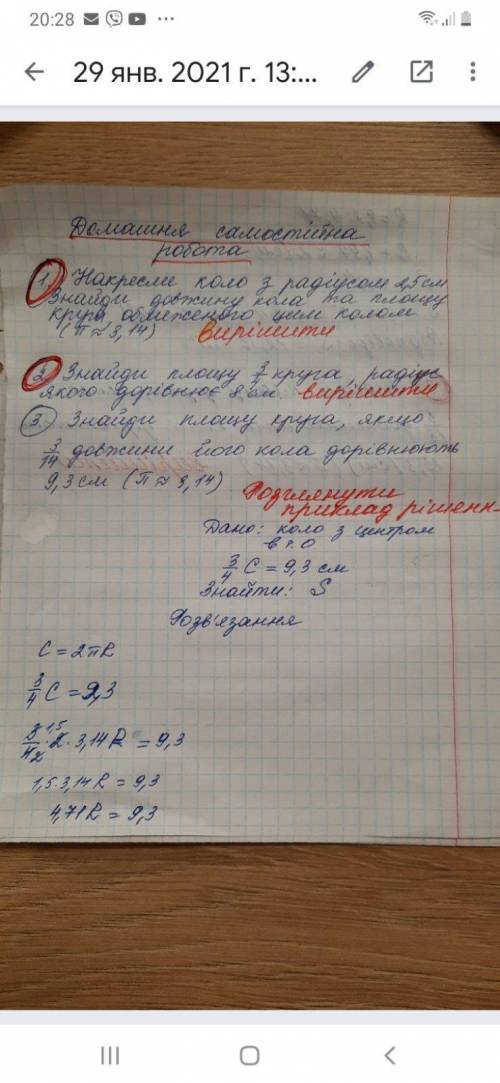 20:28
29 янв. 2021 г. 13:...
Домашня самостійна
робота
1. Накресме коло з радіусом 2,5 см
Знайди довжину кола та площу
круга обмеженого цим колом
(π ≈ 3,14) вирішити
2. Знайди площу круга, радіус
якого дорівнює 8 см вирішити
3. Знайди площу круга, якщо
3/14 довжини його кола дорівнюють
9,3 см (π ≈ 3,14)
Розглянути
приклад рішенн
Дано: коло з центром
в т. О.
3/4 C = 9,3 см
Знайти: S
Розв'язання
C = 2πR
3/4 C = 9,3
3/4 · 2 · 3,14R = 9,3
1,5 · 3,14R = 9,3
4,71R = 9,3